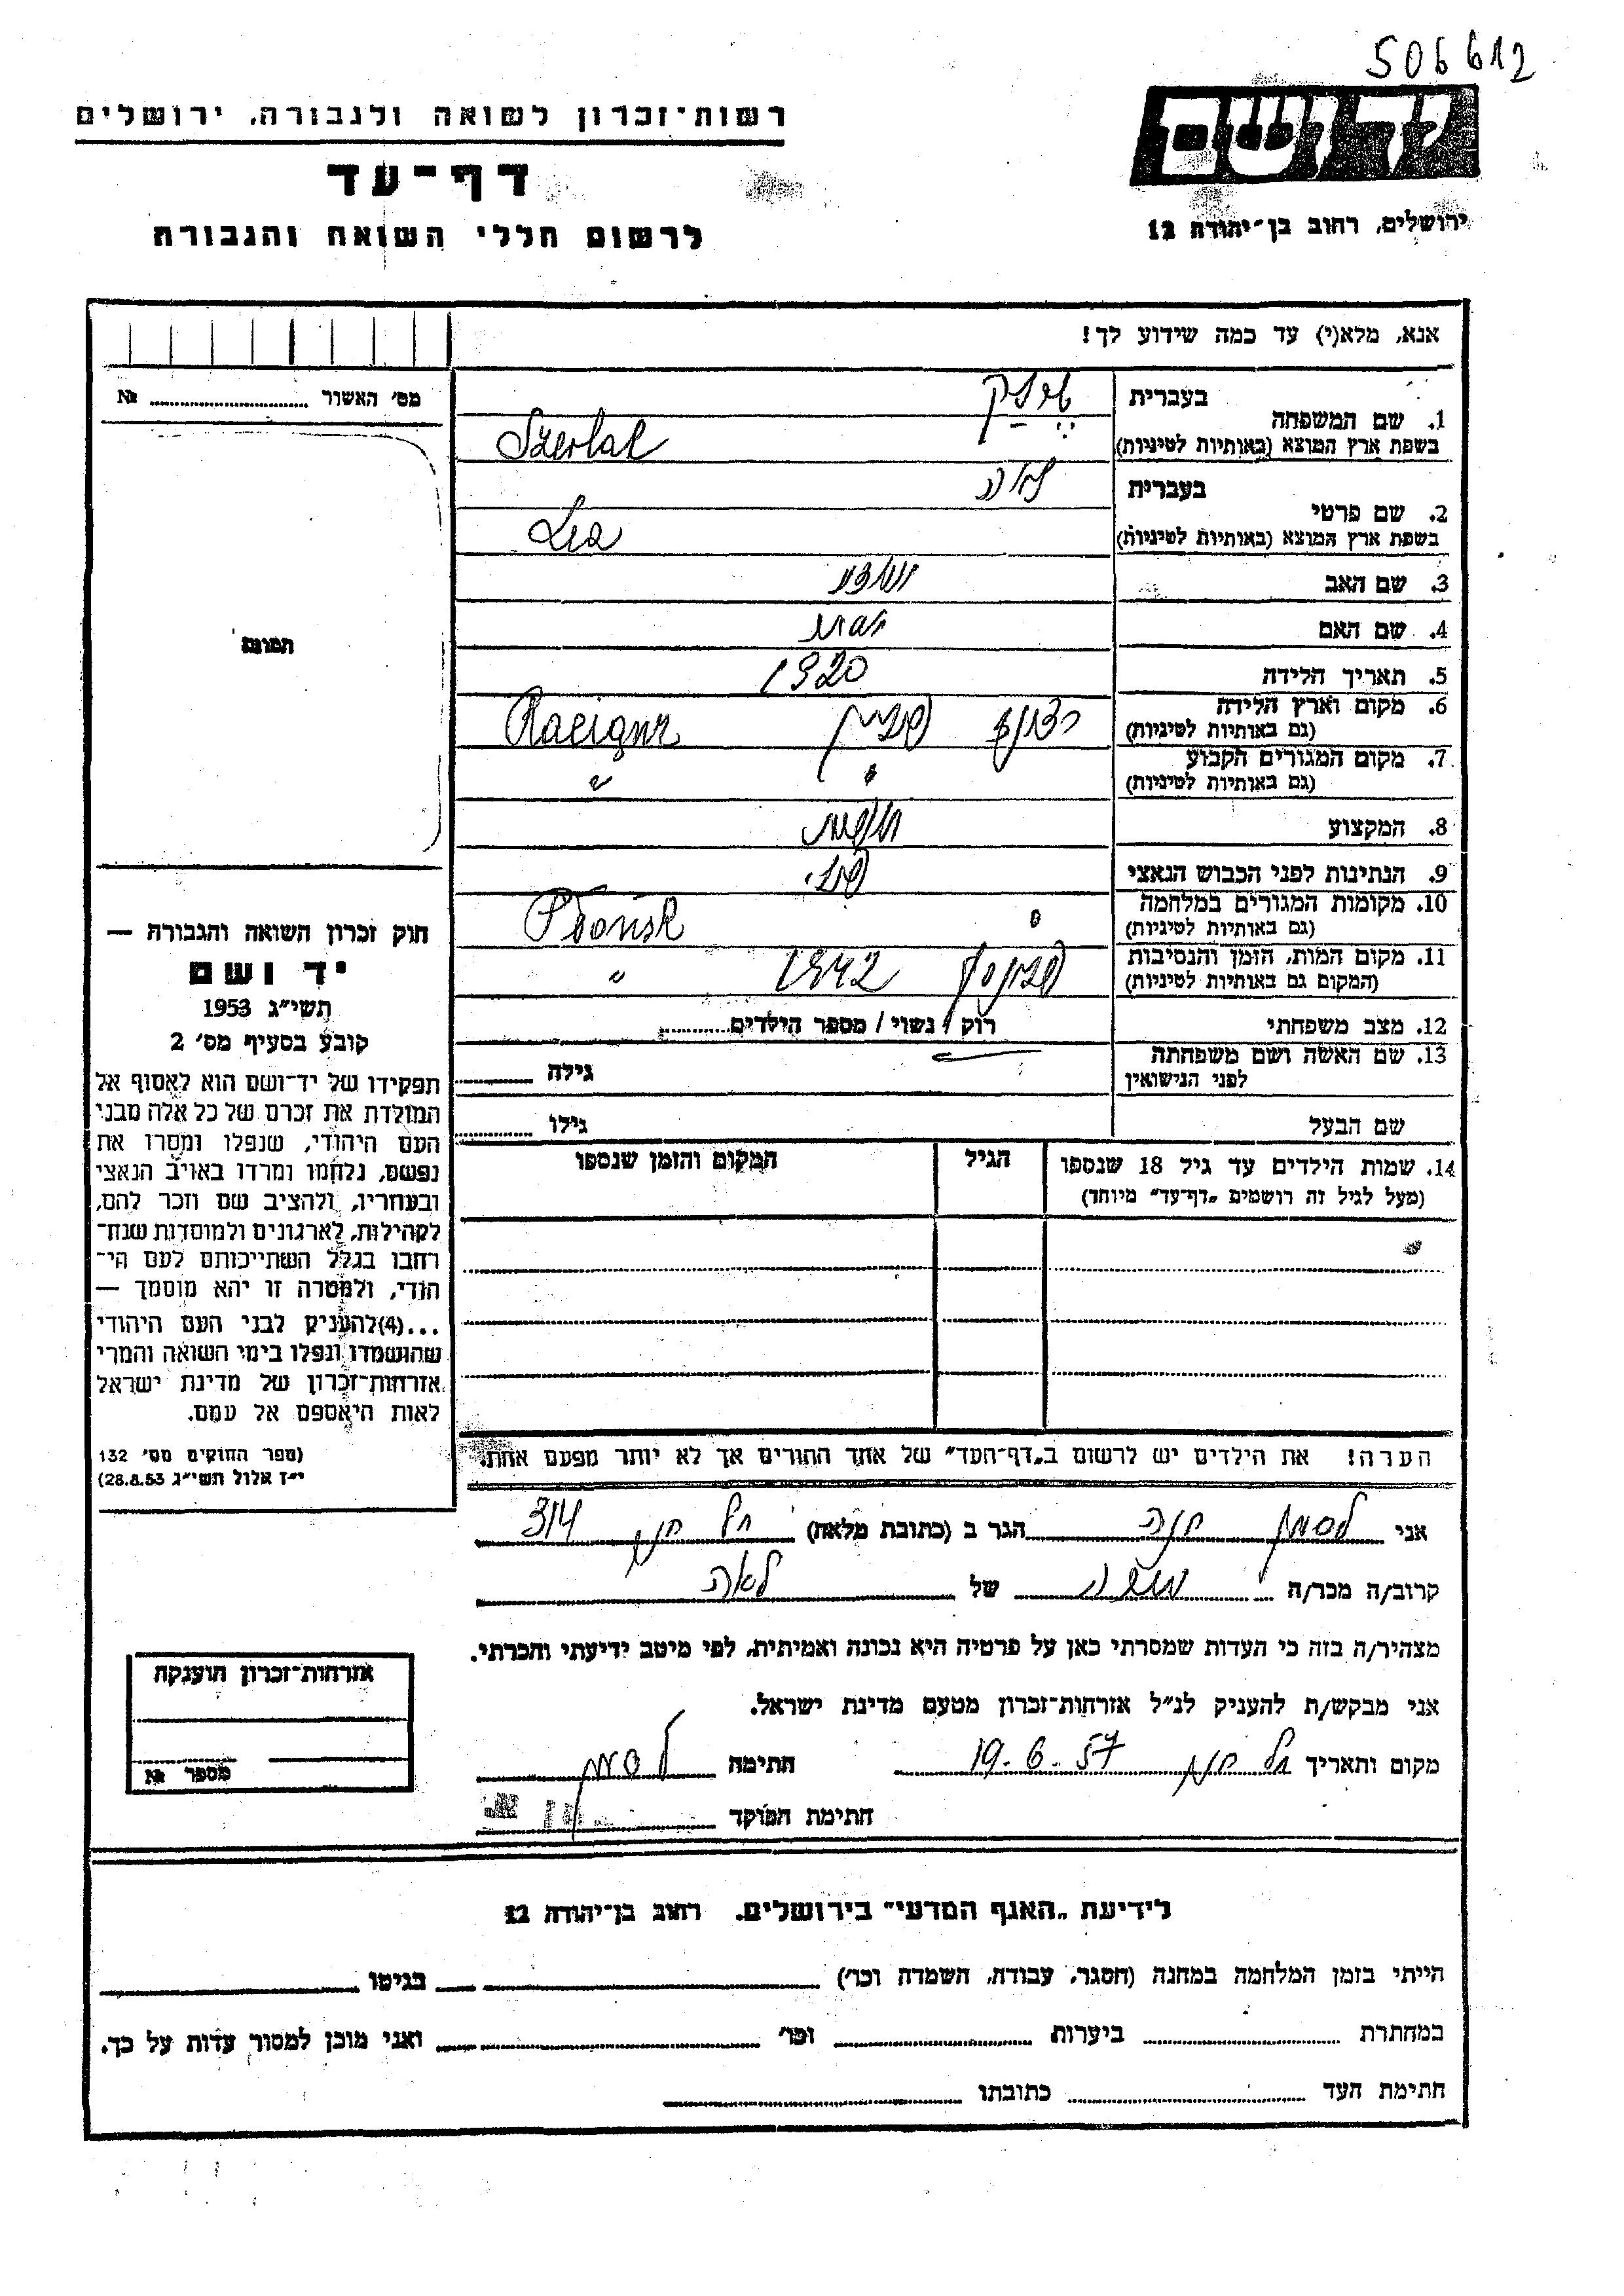 506612
רשות־זכרון לשואה ולגבורה, ירושלים
יד ושם
דף־עד
לרשום חללי השואה והגבורה
ירושלים, רחוב בן־יהודה 12
אנא, מלא(י) עד כמה שידוע לך!
מס׳ האשור № 
1. שם המשפחה בעברית
בשפת ארץ המוצא (באותיות לטיניות) Szerlak
2. שם פרטי בעברית לאה
בשפת ארץ המוצא (באותיות לטיניות) Lea
3. שם האב
4. שם האם
5. תאריך הלידה 1920
6. מקום וארץ הלידה פולין
(גם באותיות לטיניות)
7. מקום המגורים הקבוע "
(גם באותיות לטיניות) "
8. המקצוע
9. הנתינות לפני הכבוש הנאצי פולני
10. מקומות המגורים במלחמה
(גם באותיות לטיניות) Płońsk
11. מקום המות, הזמן והנסיבות 1942 "
(המקום גם באותיות לטיניות)
12. מצב משפחתי רוק / נשוי / מספר הילדים
13. שם האשה ושם משפחתה
לפני הנישואין גילה
שם הבעל גילו
14. שמות הילדים עד גיל 18 שנספו הגיל המקום והזמן שנספו
(מעל לגיל זה רושמים „דף־עד״ מיוחד)
הערה! את הילדים יש לרשום ב„דף־העד״ של אחד ההורים אך לא יותר מפעם אחת.
התמונה
חוק זכרון השואה והגבורה —
יד ושם
תשי״ג 1953
קובע בסעיף מס׳ 2
תפקידו של יד־ושם הוא לאסוף אל
המולדת את זכרם של כל אלה מבני
העם היהודי, שנפלו ומסרו את
נפשם, נלחמו ומרדו באויב הנאצי
ובעוזריו, ולהציב שם וזכר להם,
לקהילות, לארגונים ולמוסדות שנח־
רבו בגלל השתייכותם לעם הי־
הודי, ולמטרה זו יהא מוסמך —
...(4)להעניק לבני העם היהודי
שהושמדו ונפלו בימי השואה והמרי
אזרחות־זכרון של מדינת ישראל
לאות היאספם אל עמם.
(ספר החוקים מס׳ 132
י״ז אלול תשי״ג 28.8.53)
אני חנה הגר ב (כתובת מלאה) תל חנן 314
קרוב/ה מכר/ה של לאה
מצהיר/ה בזה כי העדות שמסרתי כאן על פרטיה היא נכונה ואמיתית, לפי מיטב ידיעתי והכרתי.
אני מבקש/ת להעניק לנ״ל אזרחות־זכרון מטעם מדינת ישראל.
מקום ותאריך תל חנן 19.6.57 חתימה
חתימת הפוקד
אזרחות־זכרון הוענקה
מספר №
לידיעת „האגף המדעי״ בירושלים, רחוב בן־יהודה 12
הייתי בזמן המלחמה במחנה (הסגר, עבודה, השמדה וכו׳) בגיטו
במחתרת ביערות וכו׳ ואני מוכן למסור עדות על כך.
חתימת העד כתובתו